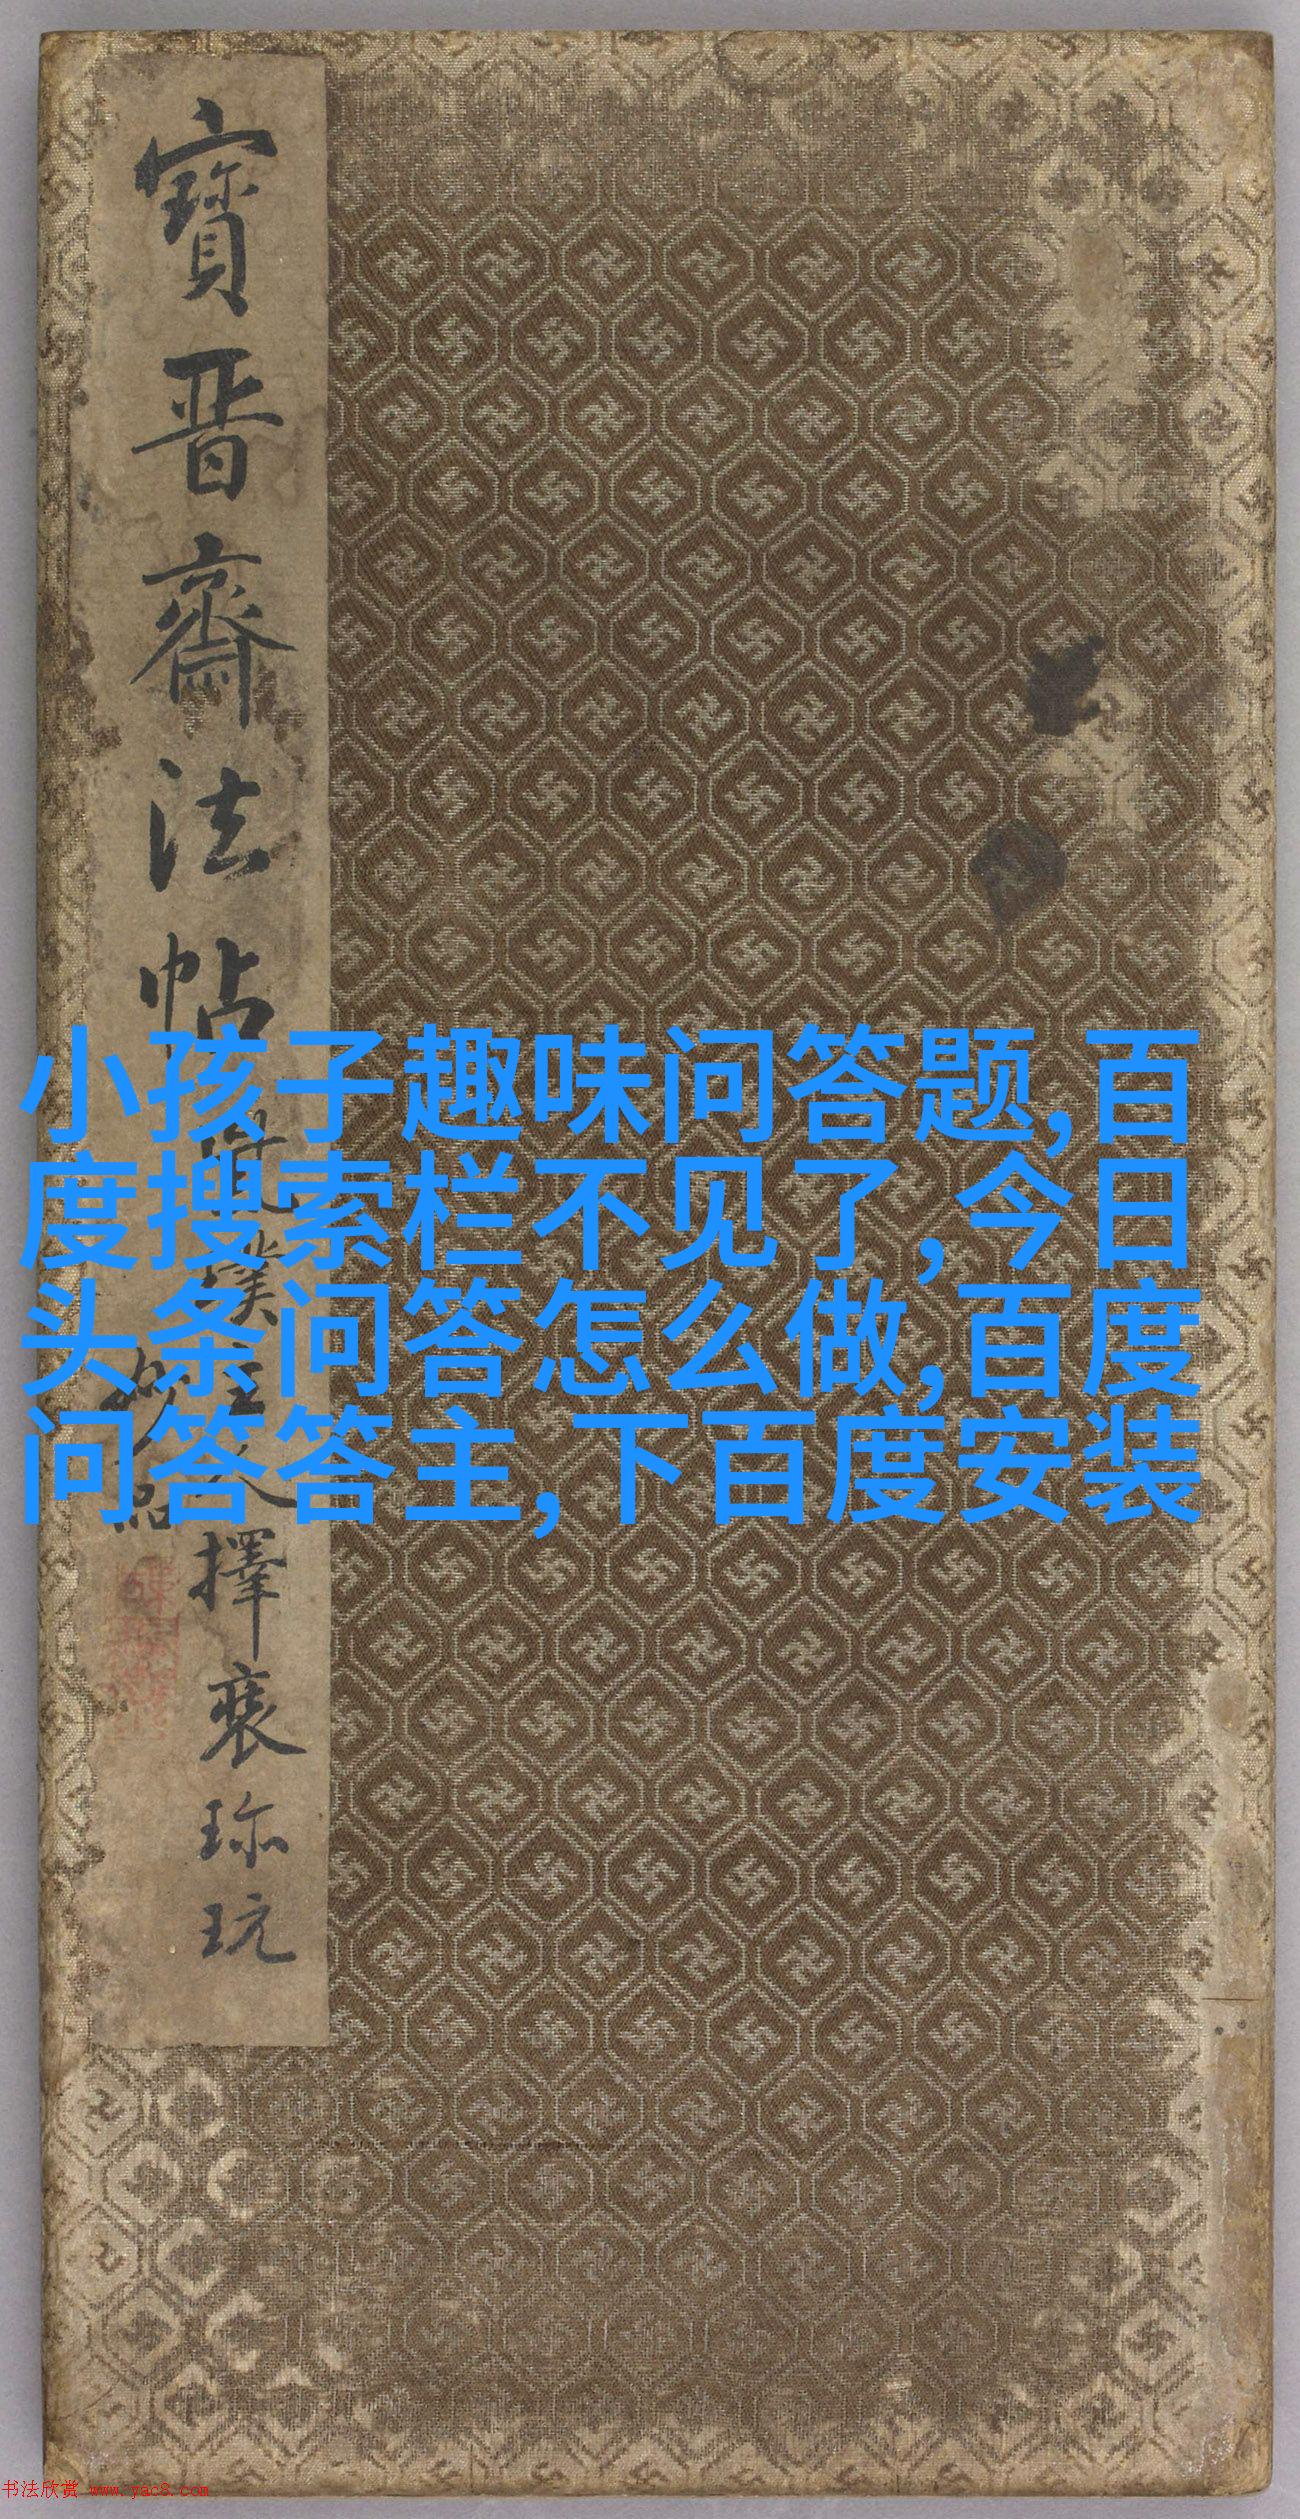 寶晋齋法帖
擇裘珎玩
妙品
小孩子趣味问答题,百
度搜索栏不见了,今日
头条问答怎么做,百度
问答答主,下百度安装
书法欣赏 www.yac8.com